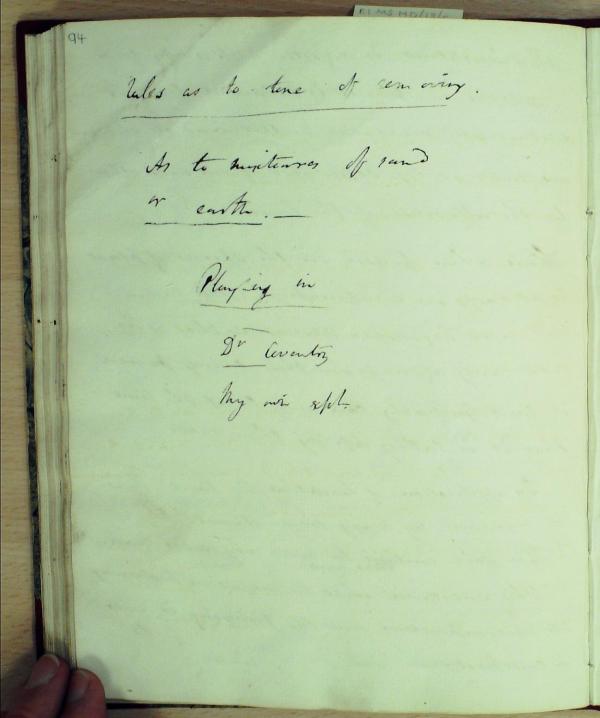 94
RI MS HD/13/C
Rules as to time of removing.
As to mixtures of sand
or earth. —
Ploughing in
Dr Coventry
My own expt.